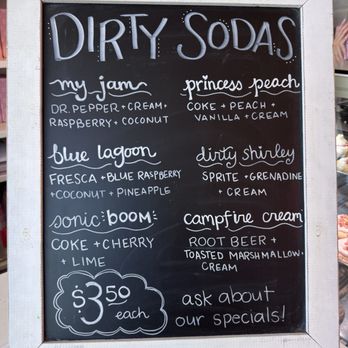 DIRTY SODAS
my jam
DR. PEPPER + CREAM +
RASPBERRY + COCONUT
princess peach
COKE + PEACH +
VANILLA + CREAM
blue lagoon
FRESCA + BLUE RASPBERRY
+ COCONUT + PINEAPPLE
dirty shirley
SPRITE + GRENADINE
+ CREAM
sonic BOOM
COKE + CHERRY
+ LIME
campfire cream
ROOT BEER +
TOASTED MARSHMALLOW +
CREAM
$3.50
each
ask about
our specials!